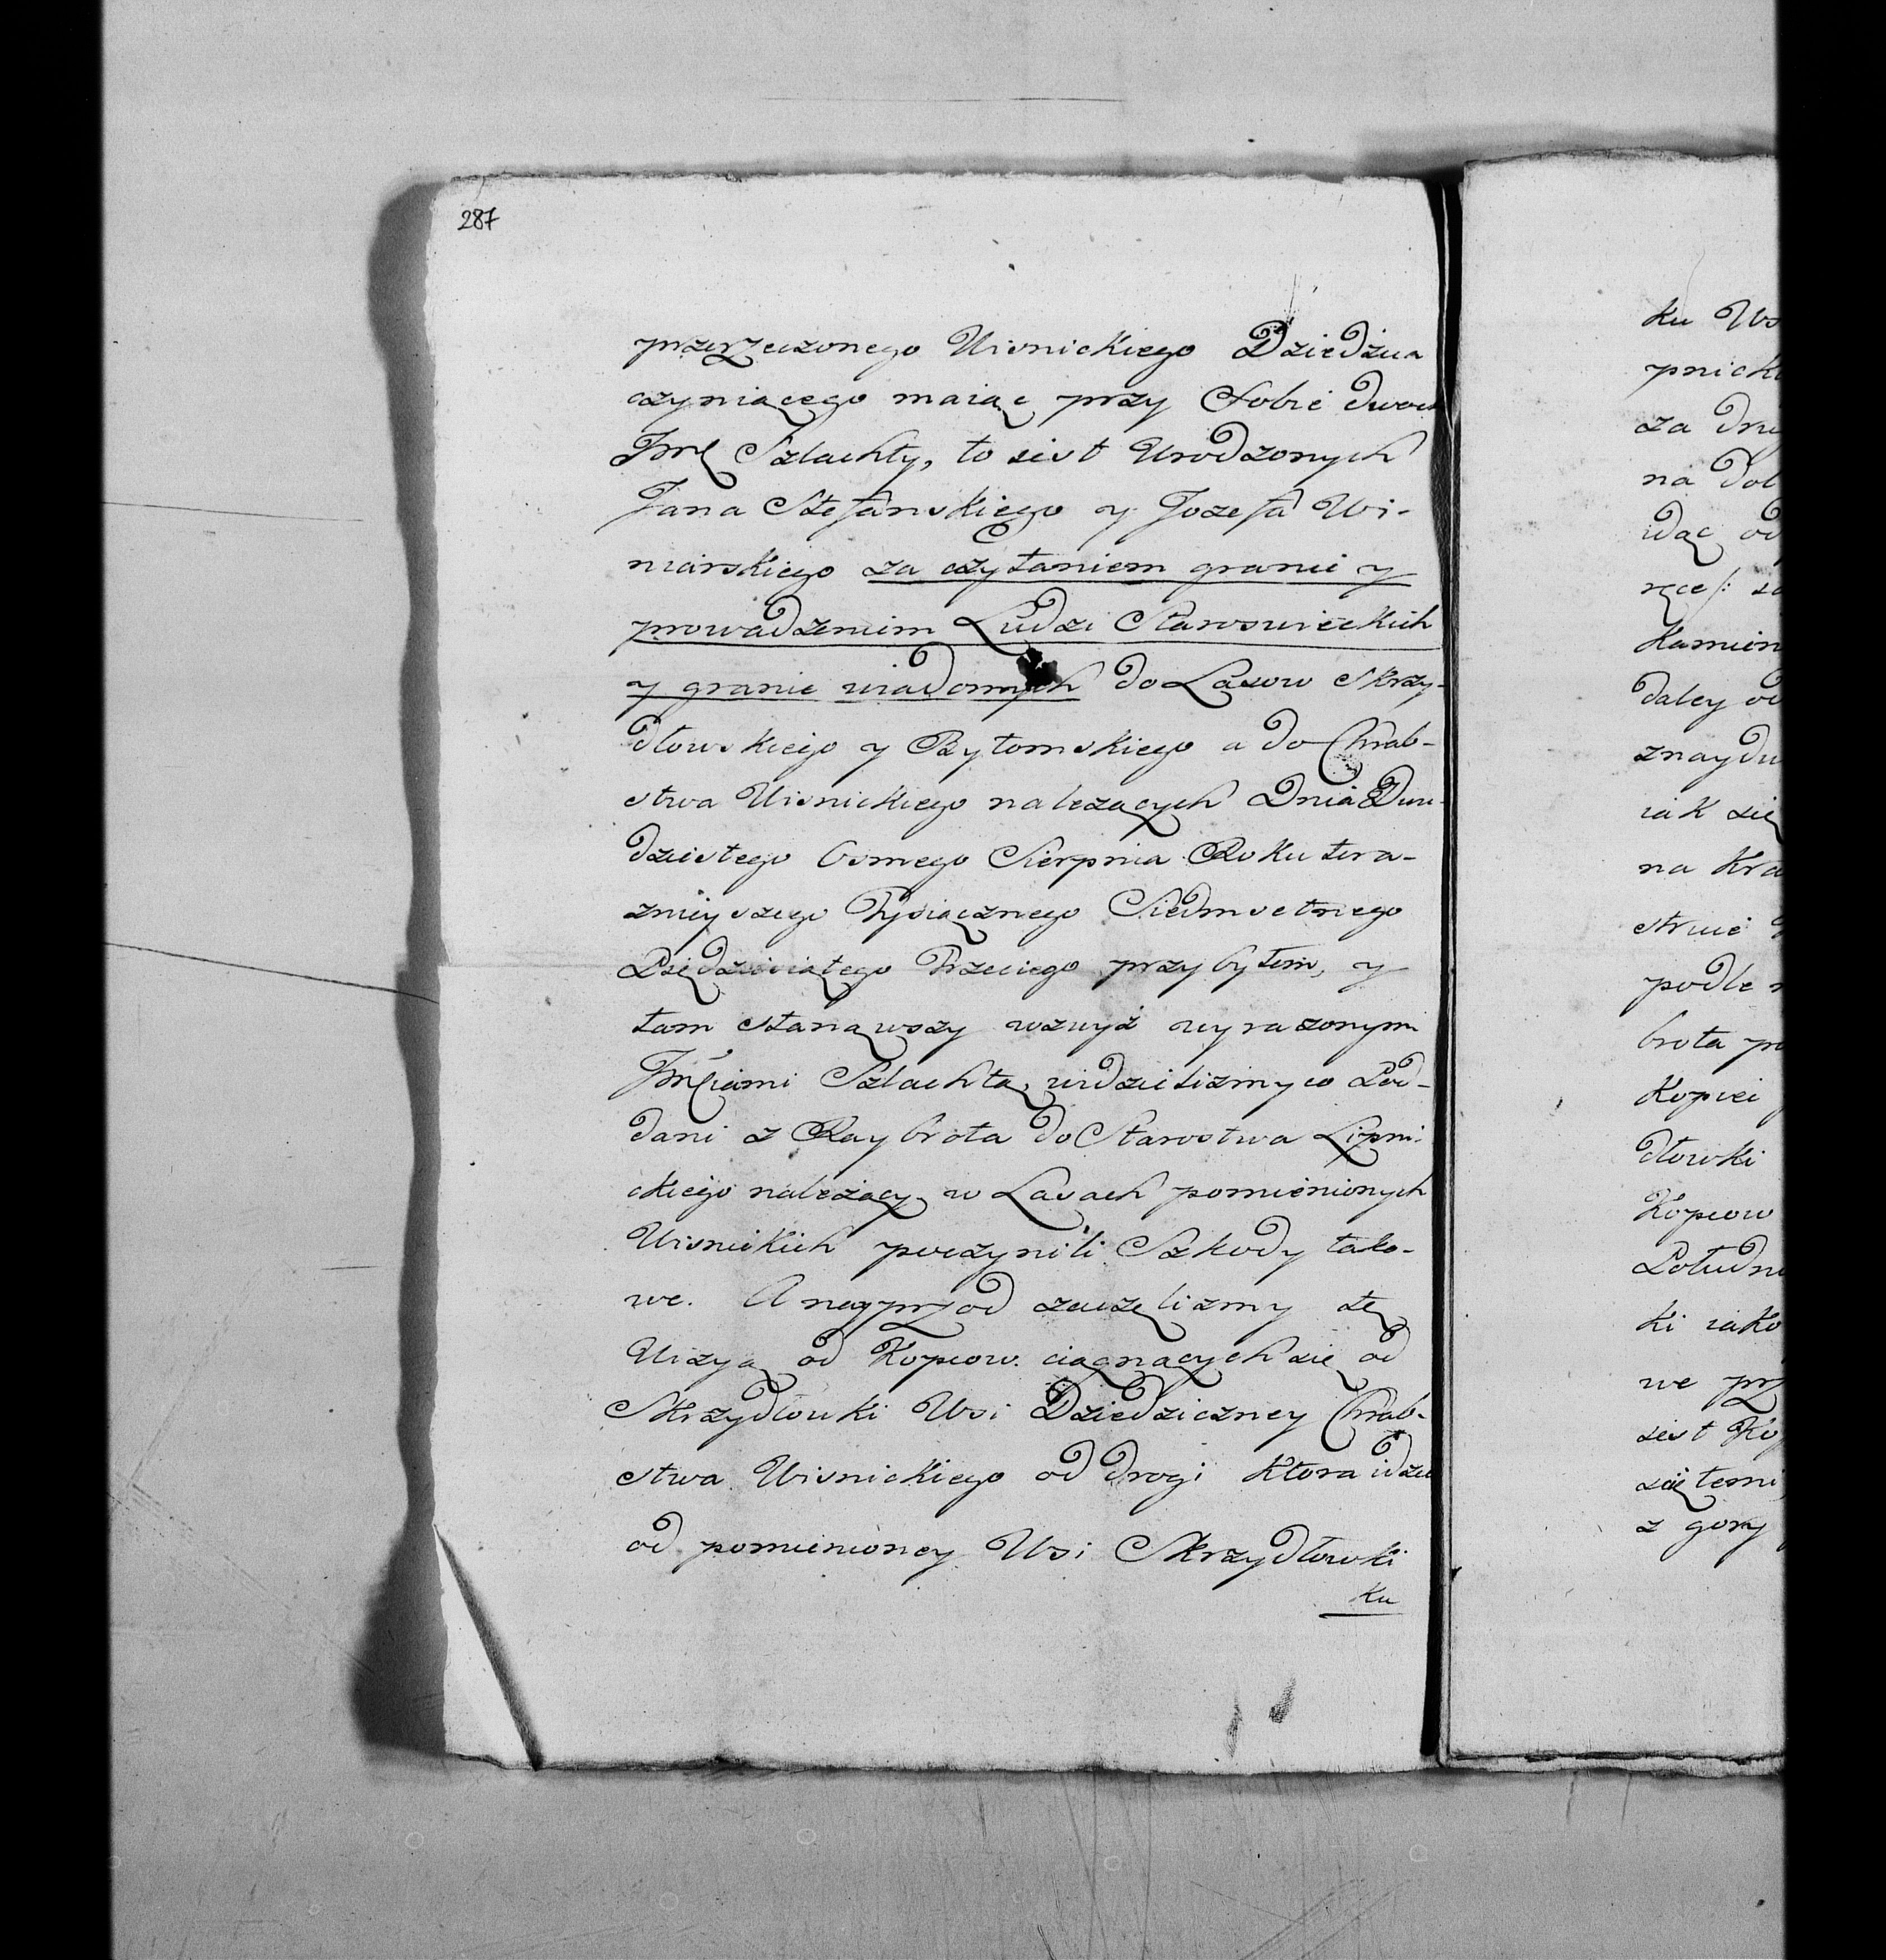 287
przerzeczonego Wisnickiego Dziedzica
czyniącego maiąc przy Sobie dwoch
Jmć Szlachty, to iest Urodzonych
Jana Stefanskiego y Jozefa Wi-
niarskiego za czytaniem granic y
prowadzeniem Ludzi Starowieckich
y granic wiadomych do Lasow Skrzy-
dłowskiego y Bytomskiego a do Chrab-
stwa Wisnickiego należących Dnia Dwu-
dziestego Osmego Sierpnia Roku tera-
znieyszego Tysiącznego Siedmsetnego
Pięćdziesiątego Trzeciego przybyłem, y
tam stanąwszy wzwyż wyrazonymi
Jmćiami Szlachtą, widzielizmy co Pod-
dani z Raybrota do Starostwa Lipni-
ckiego należący, w Lasach pomienionych
Wisnickich poczynili Szkody tako-
we. A nayprzod zaczęlizmy tę
Wizyą od Kopcow ciągnących się od
Skrzydłowki Wsi Dziedziczney Chrab-
stwa Wisnickiego od drogi ktora idzie
od pomienioney Wsi Skrzydłowki
ku
ku Ws
pnick
za dru
na dol
idąc od
ręce/: so
Kamien
daley od
znaydu
iak się
na Kra
struie
podle
brota p
Kopiei
dłowki
Kopcow
Połudn
ki iako
we prz
iest Kop
się temi
z gory